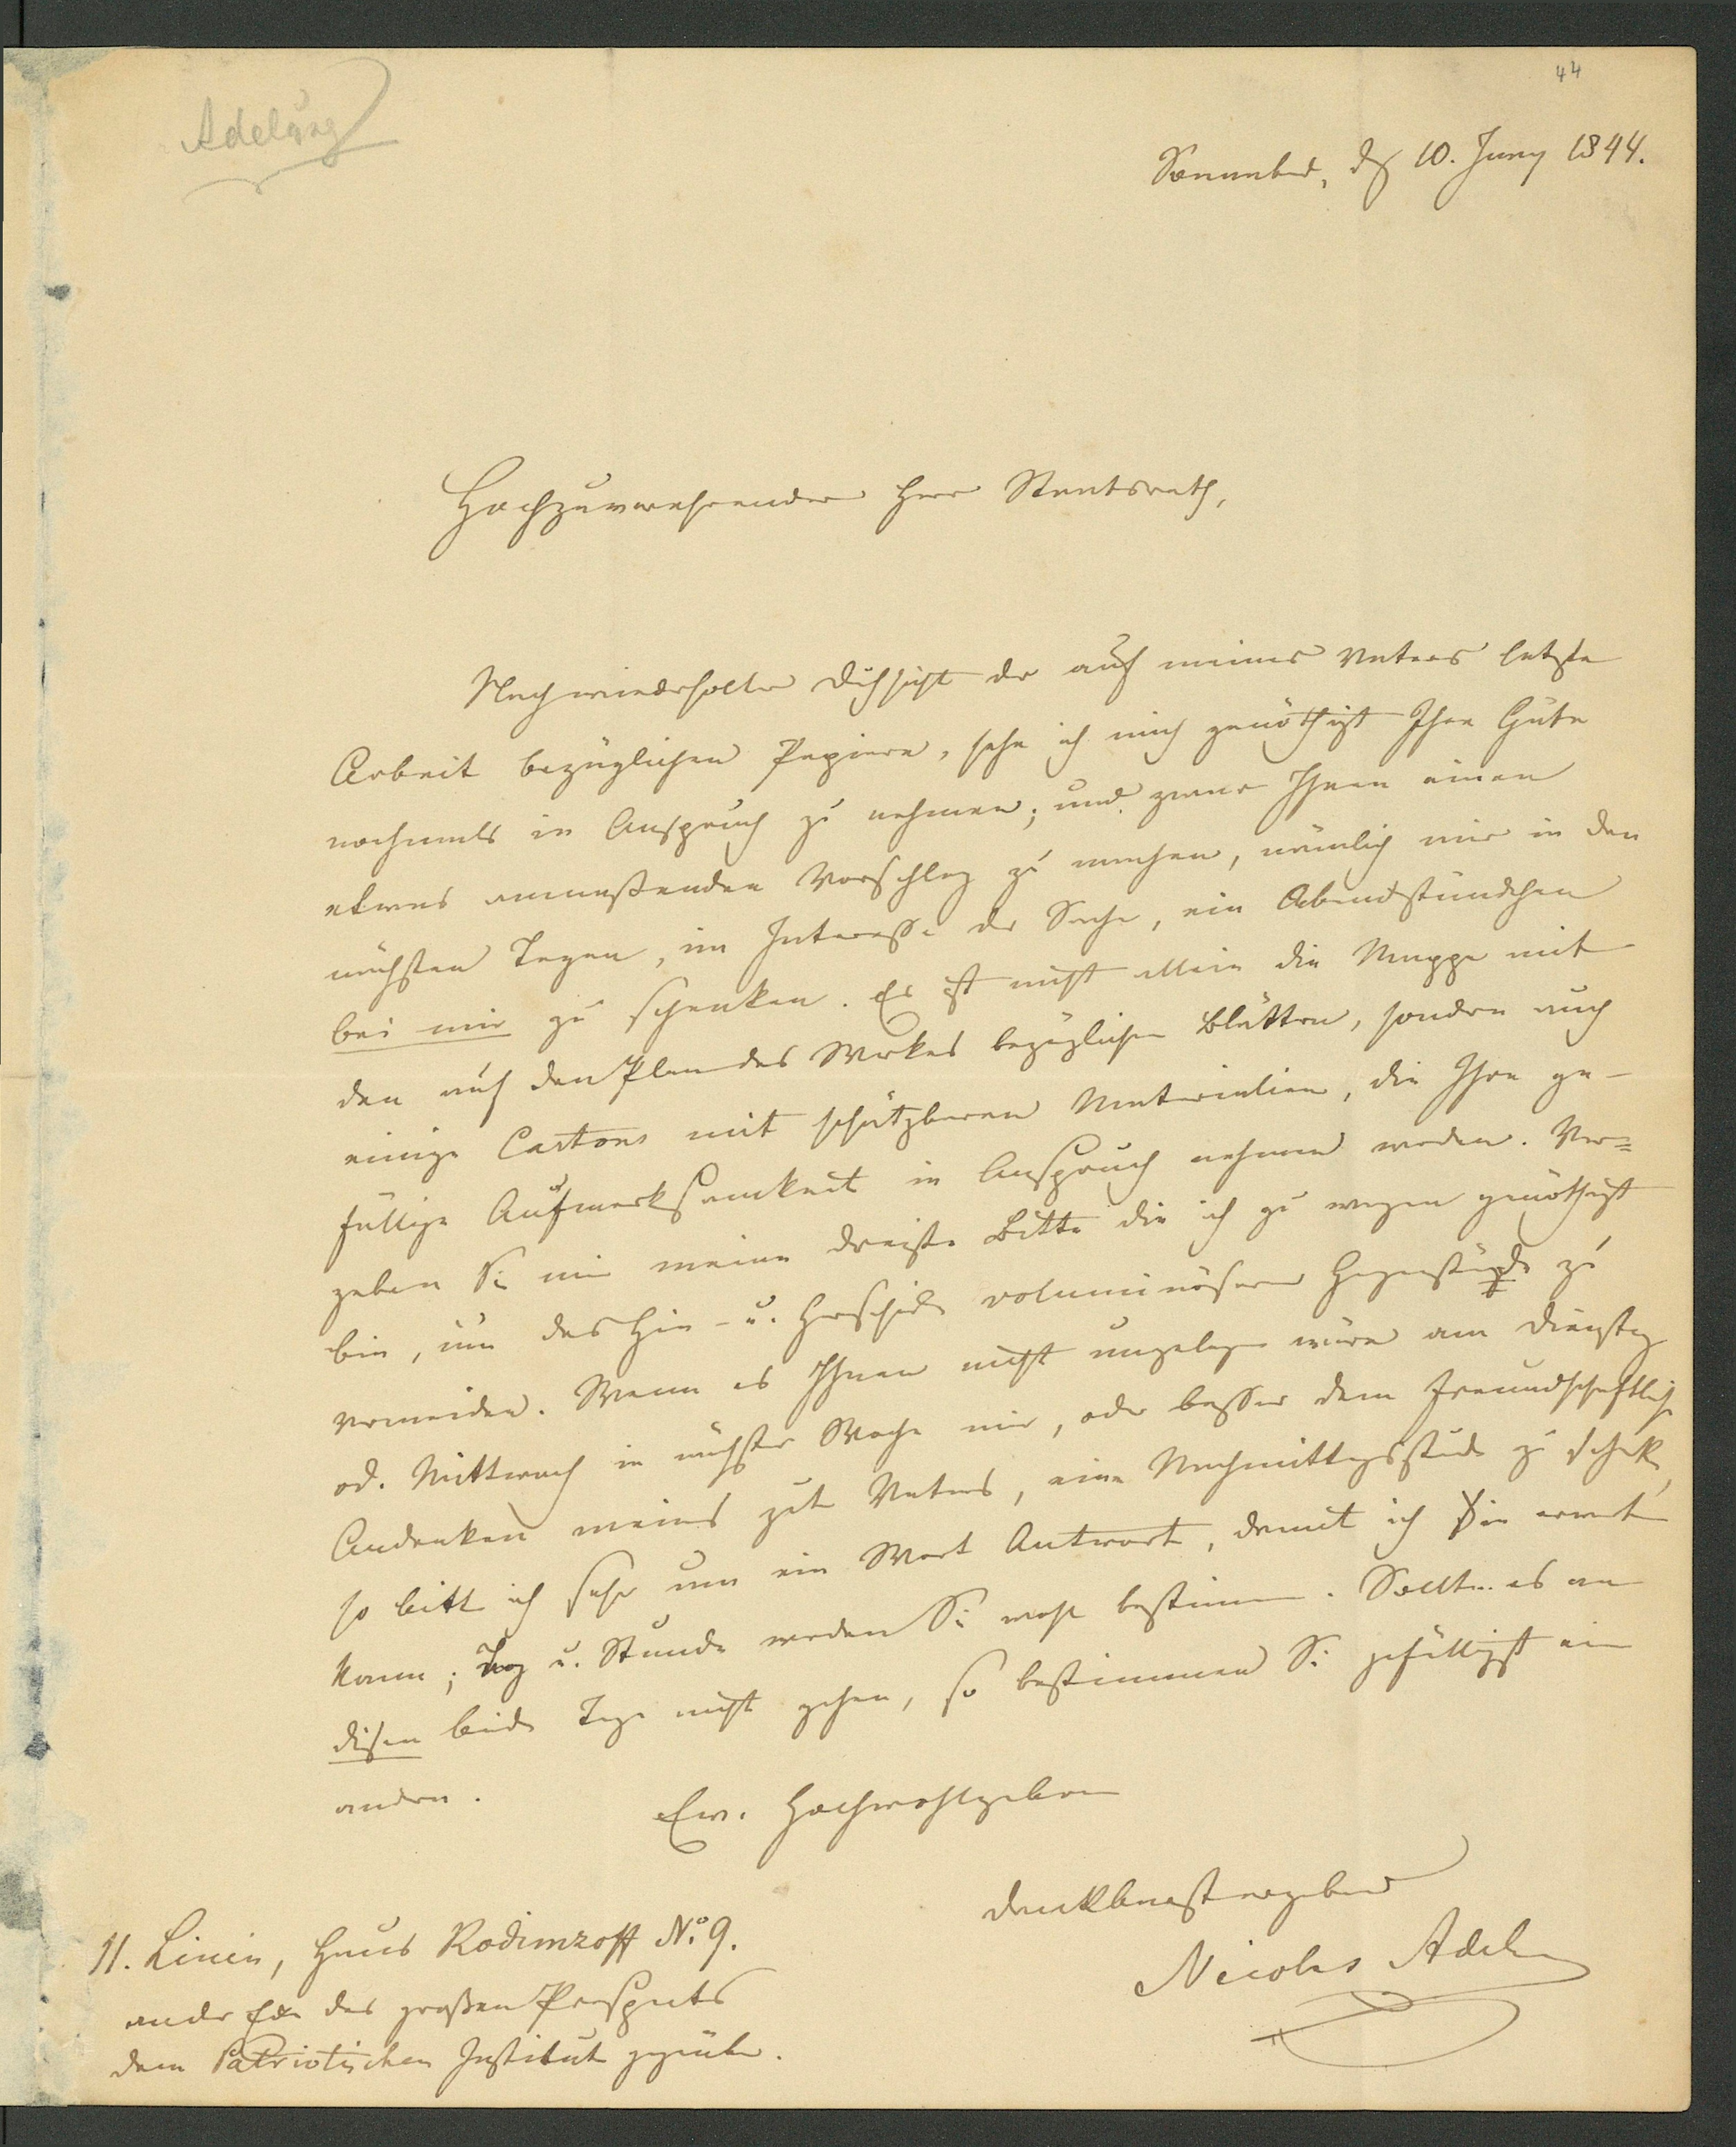 44
Adelung
Sonnabend, d. 10. Juny 1844.
Hochzuverehrender Herr Staatsrath,
Nach wiederholter Durchsicht der auf meines Vaters letzte
Arbeit bezüglichen Papiere, sehe ich mich genöthigt Ihre Güte
nochmals in Anspruch zu nehmen; und zwar Ihnen einen
etwas anmaßenden Vorschlag zu machen, nämlich mir in den
nächsten Tagen, im Interesse der Sache, ein Abendstündchen
bei mir zu schenken. Es ist nicht allein die Mappe mit
den auf den Plan des Werkes bezüglichen Blättern, sondern auch
einige Cartons mit schätzbaren Materialien, die Ihre ge-
fällige Aufmerksamkeit in Anspruch nehmen werden. Ver=
geben Sie mir meine dreiste Bitte die ich zu wagen genöthigt
bin, um das Hin- u. Herschicken voluminöser Gegenstände zu
vermeiden. Wenn es Ihnen nicht ungelegen wäre am Dienstag
od. Mittwoch in nächster Woche mir, oder besser dem freundschaftlichen
Andenken meines guten Vaters, eine Nachmittagsstunde zu schenken,
so bitte ich sehr um ein Wort Antwort, damit ich Sie erwarten
kann; Tag u. Stunde werden Sie wohl bestimmen. Sollte es an
diesen beiden Tagen nicht gehen, so bestimmen Sie gefälligst einen
andern.
Ew. Hochwohlgeboren
dankbarst ergebener
Nicolas Adelung
11. Linie, Haus Rodimzoff No. 9.
an der Ecke des großen Prospects
dem Patriotischen Institut gegenüber.